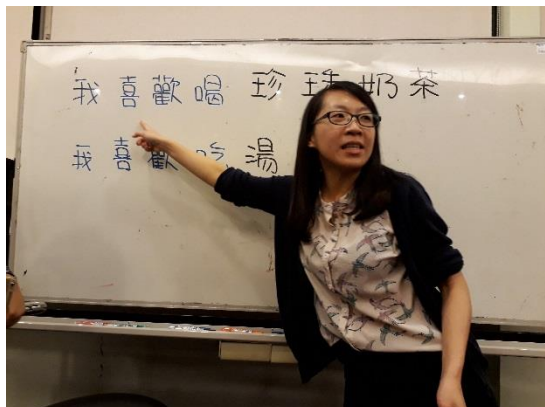 我喜歡喝珍珠奶茶
我喜歡吃湯